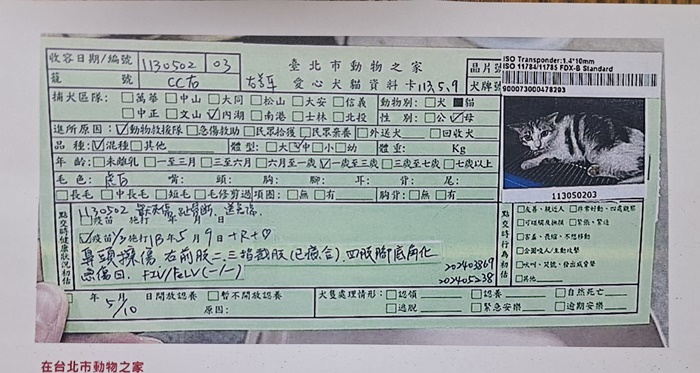 收容日期/編號 1130502 03
臺北市動物之家
晶片號
ISO Transponder:1.4*10mm
ISO 11784/11785 FDX-B Standard
籠 號 CC右
愛心犬貓資料卡 113.5.9
犬牌號
900073000478293
捕犬區隊: □萬華 □中山 □大同 □松山 □大安 □信義 動物別: □犬 ■貓
□中正 □文山 ☑內湖 □南港 □士林 □北投 性 別: □公 ☑母
進所原因: ☑動物救援隊 □急傷救助 □民眾拾獲 □民眾棄養 □外送犬 □回收犬
品 種: ☑混種 □其他 體型: □大 □中 □小 □幼 體重: Kg
年 齡: □未離乳 □一至三月 □三至六月 □六月至一歲 ☑一歲至三歲 □三歲至七歲 □七歲以上
毛 色: 虎白 嘴: 頭: 胸: 腳: 耳: 背: 尾:
□長毛 □中長毛 □短毛 □毛修剪過 項圈: □無 □有 胸背: □無 □有
113050203
點交時健康狀況初估
1130502
□疫苗 施打 年 月 日
☑疫苗 施打 113年5月9日 +R+♡
鼻頭擦傷 右前肢二、三指截肢(已癒合) 四肢腳底角化
FIV/FeLV(-/-)
202403869
202405238
點交時行為初估
□友善、親近人 □非常好動、四處觀察
□可碰觸及撫摸 □緊張、緊迫
□害羞、畏縮、不想移動
□企圖咬人/主動攻擊
□吠叫、哭號、發出威脅聲
□其他
年5月10日開放認養 □暫不開放認養
原因:
犬隻處理情形: □認領 □認養 □自然死亡
□逃脫 □緊急安樂 □逾期安樂
在台北市動物之家